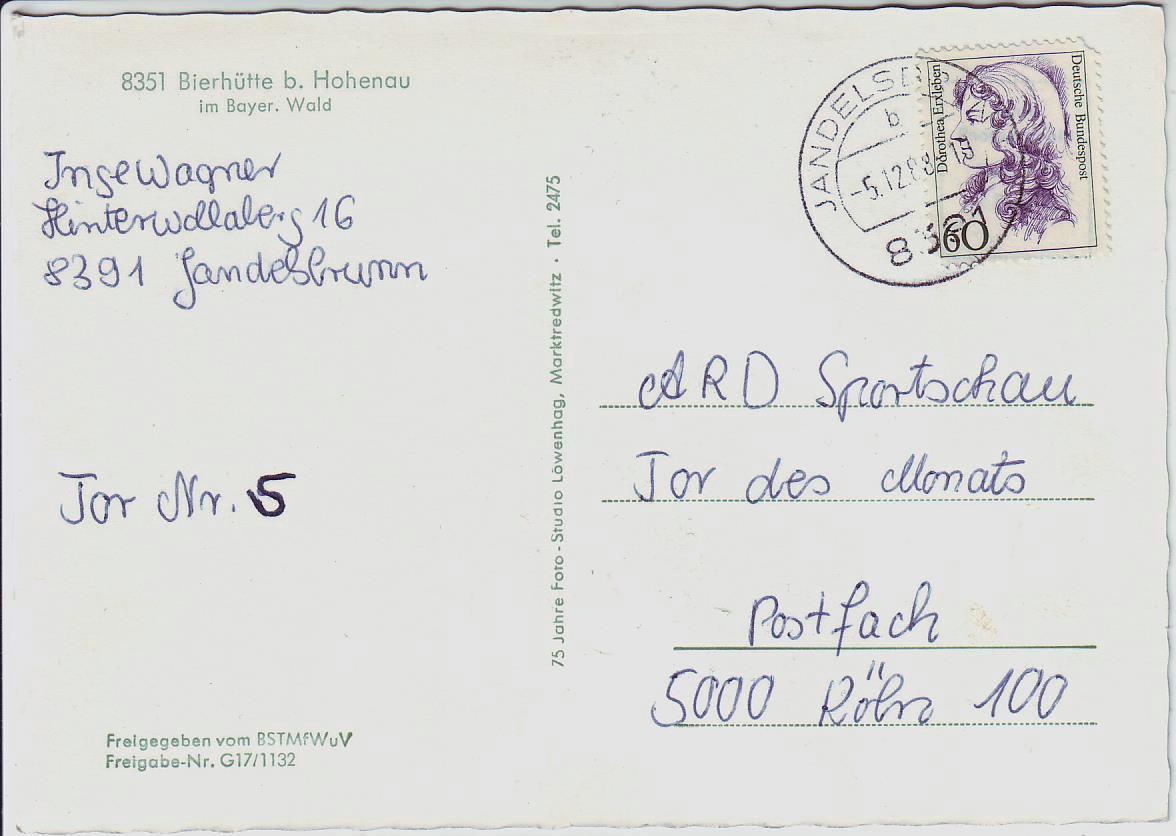 8351 Bierhütte b. Hohenau
im Bayer. Wald
Inge Wagner
Hinterwollaberg 16
8391 Jandesbrunn
Tor Nr. 5
Freigegeben vom BSTMfWuV
Freigabe-Nr. G17/1132
75 Jahre Foto-Studio Löwenhag, Marktredwitz · Tel. 2475
JANDELSB
b
-5.12.88
8391
Dorothea Erxleben
Deutsche Bundespost
60
ARD Sportschau
Tor des Monats
Postfach
5000 Köln 100